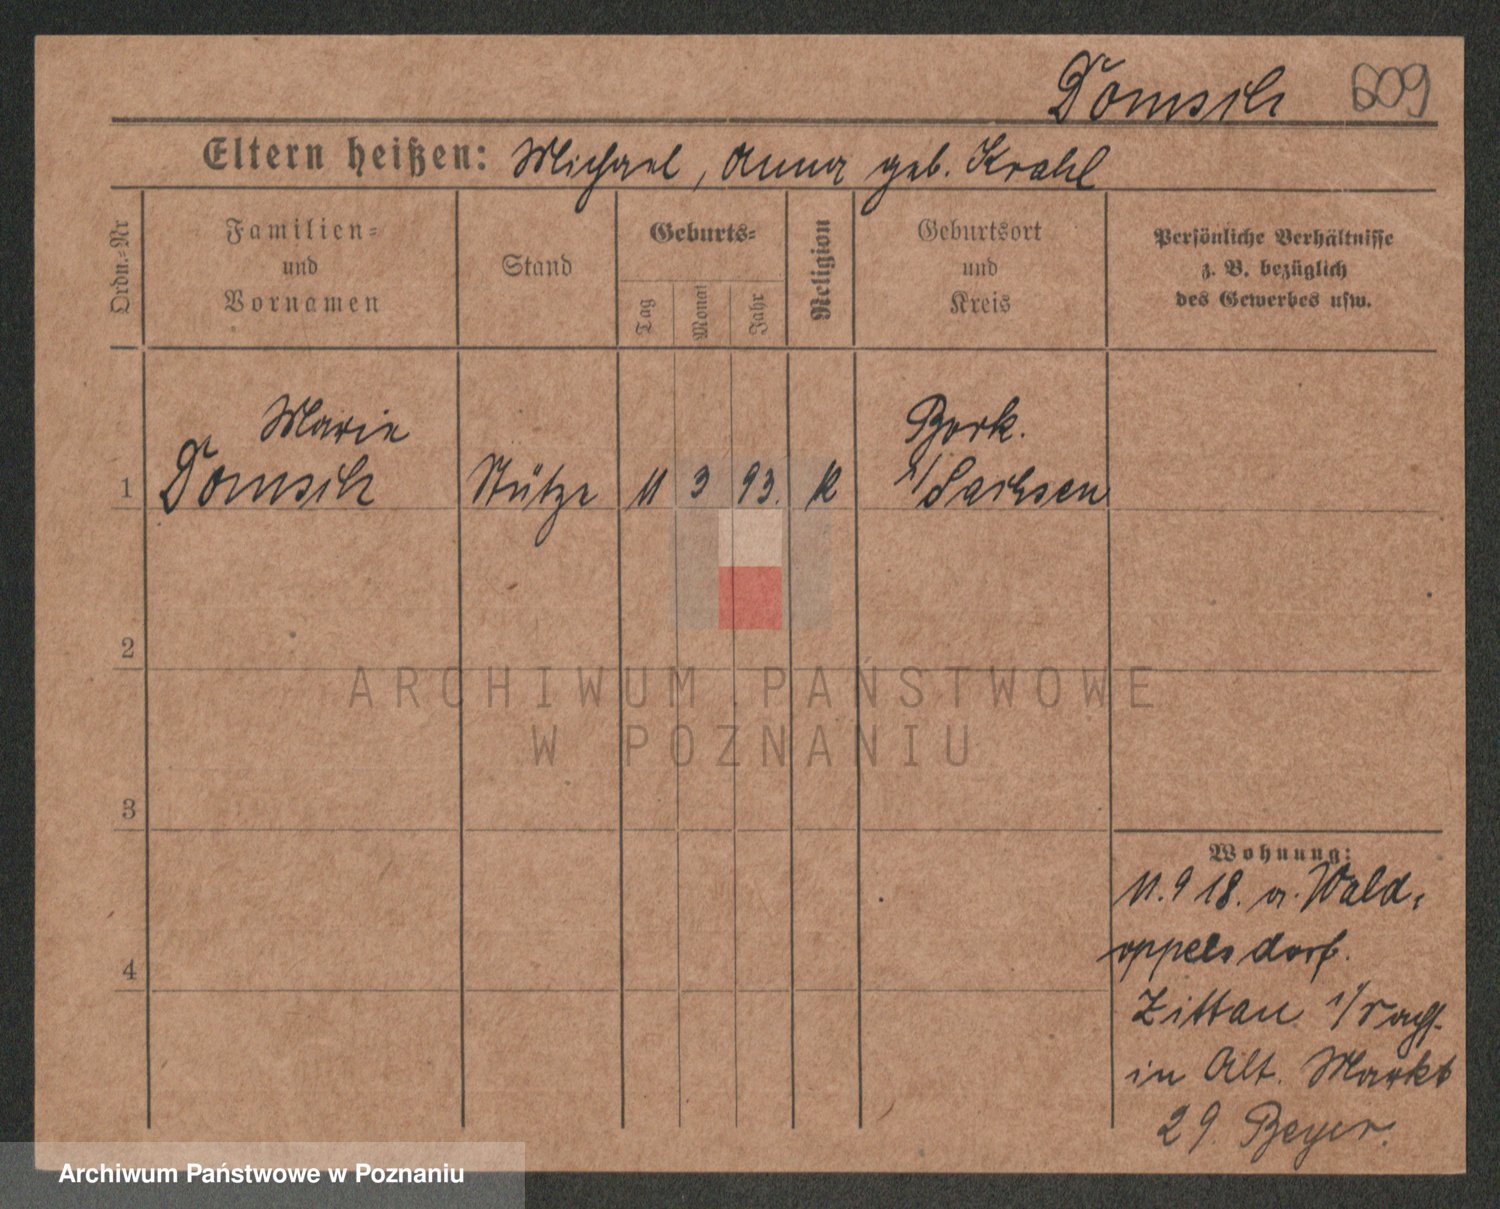 Domsch 609
Eltern heißen: Michael, Anna geb. Krahl
Ordn.=Nr
Familien=
und
Vornamen
Stand
Geburts=
Tag
Monat
Jahr
Religion
Geburtsort
und
Kreis
Persönliche Verhältnisse
z. B. bezüglich
des Gewerbes usw.
Marie
1 Domsch Stütze 11 3 93. K
Bork.
i/Sachsen
2
ARCHIWUM PAŃSTWOWE
W POZNANIU
3
4
Wohnung:
11.9 18. a. Wald=
oppelsdorf.
Zittau i/Sachs.
in Alt. Markt
29. Beyer.
Archiwum Państwowe w Poznaniu